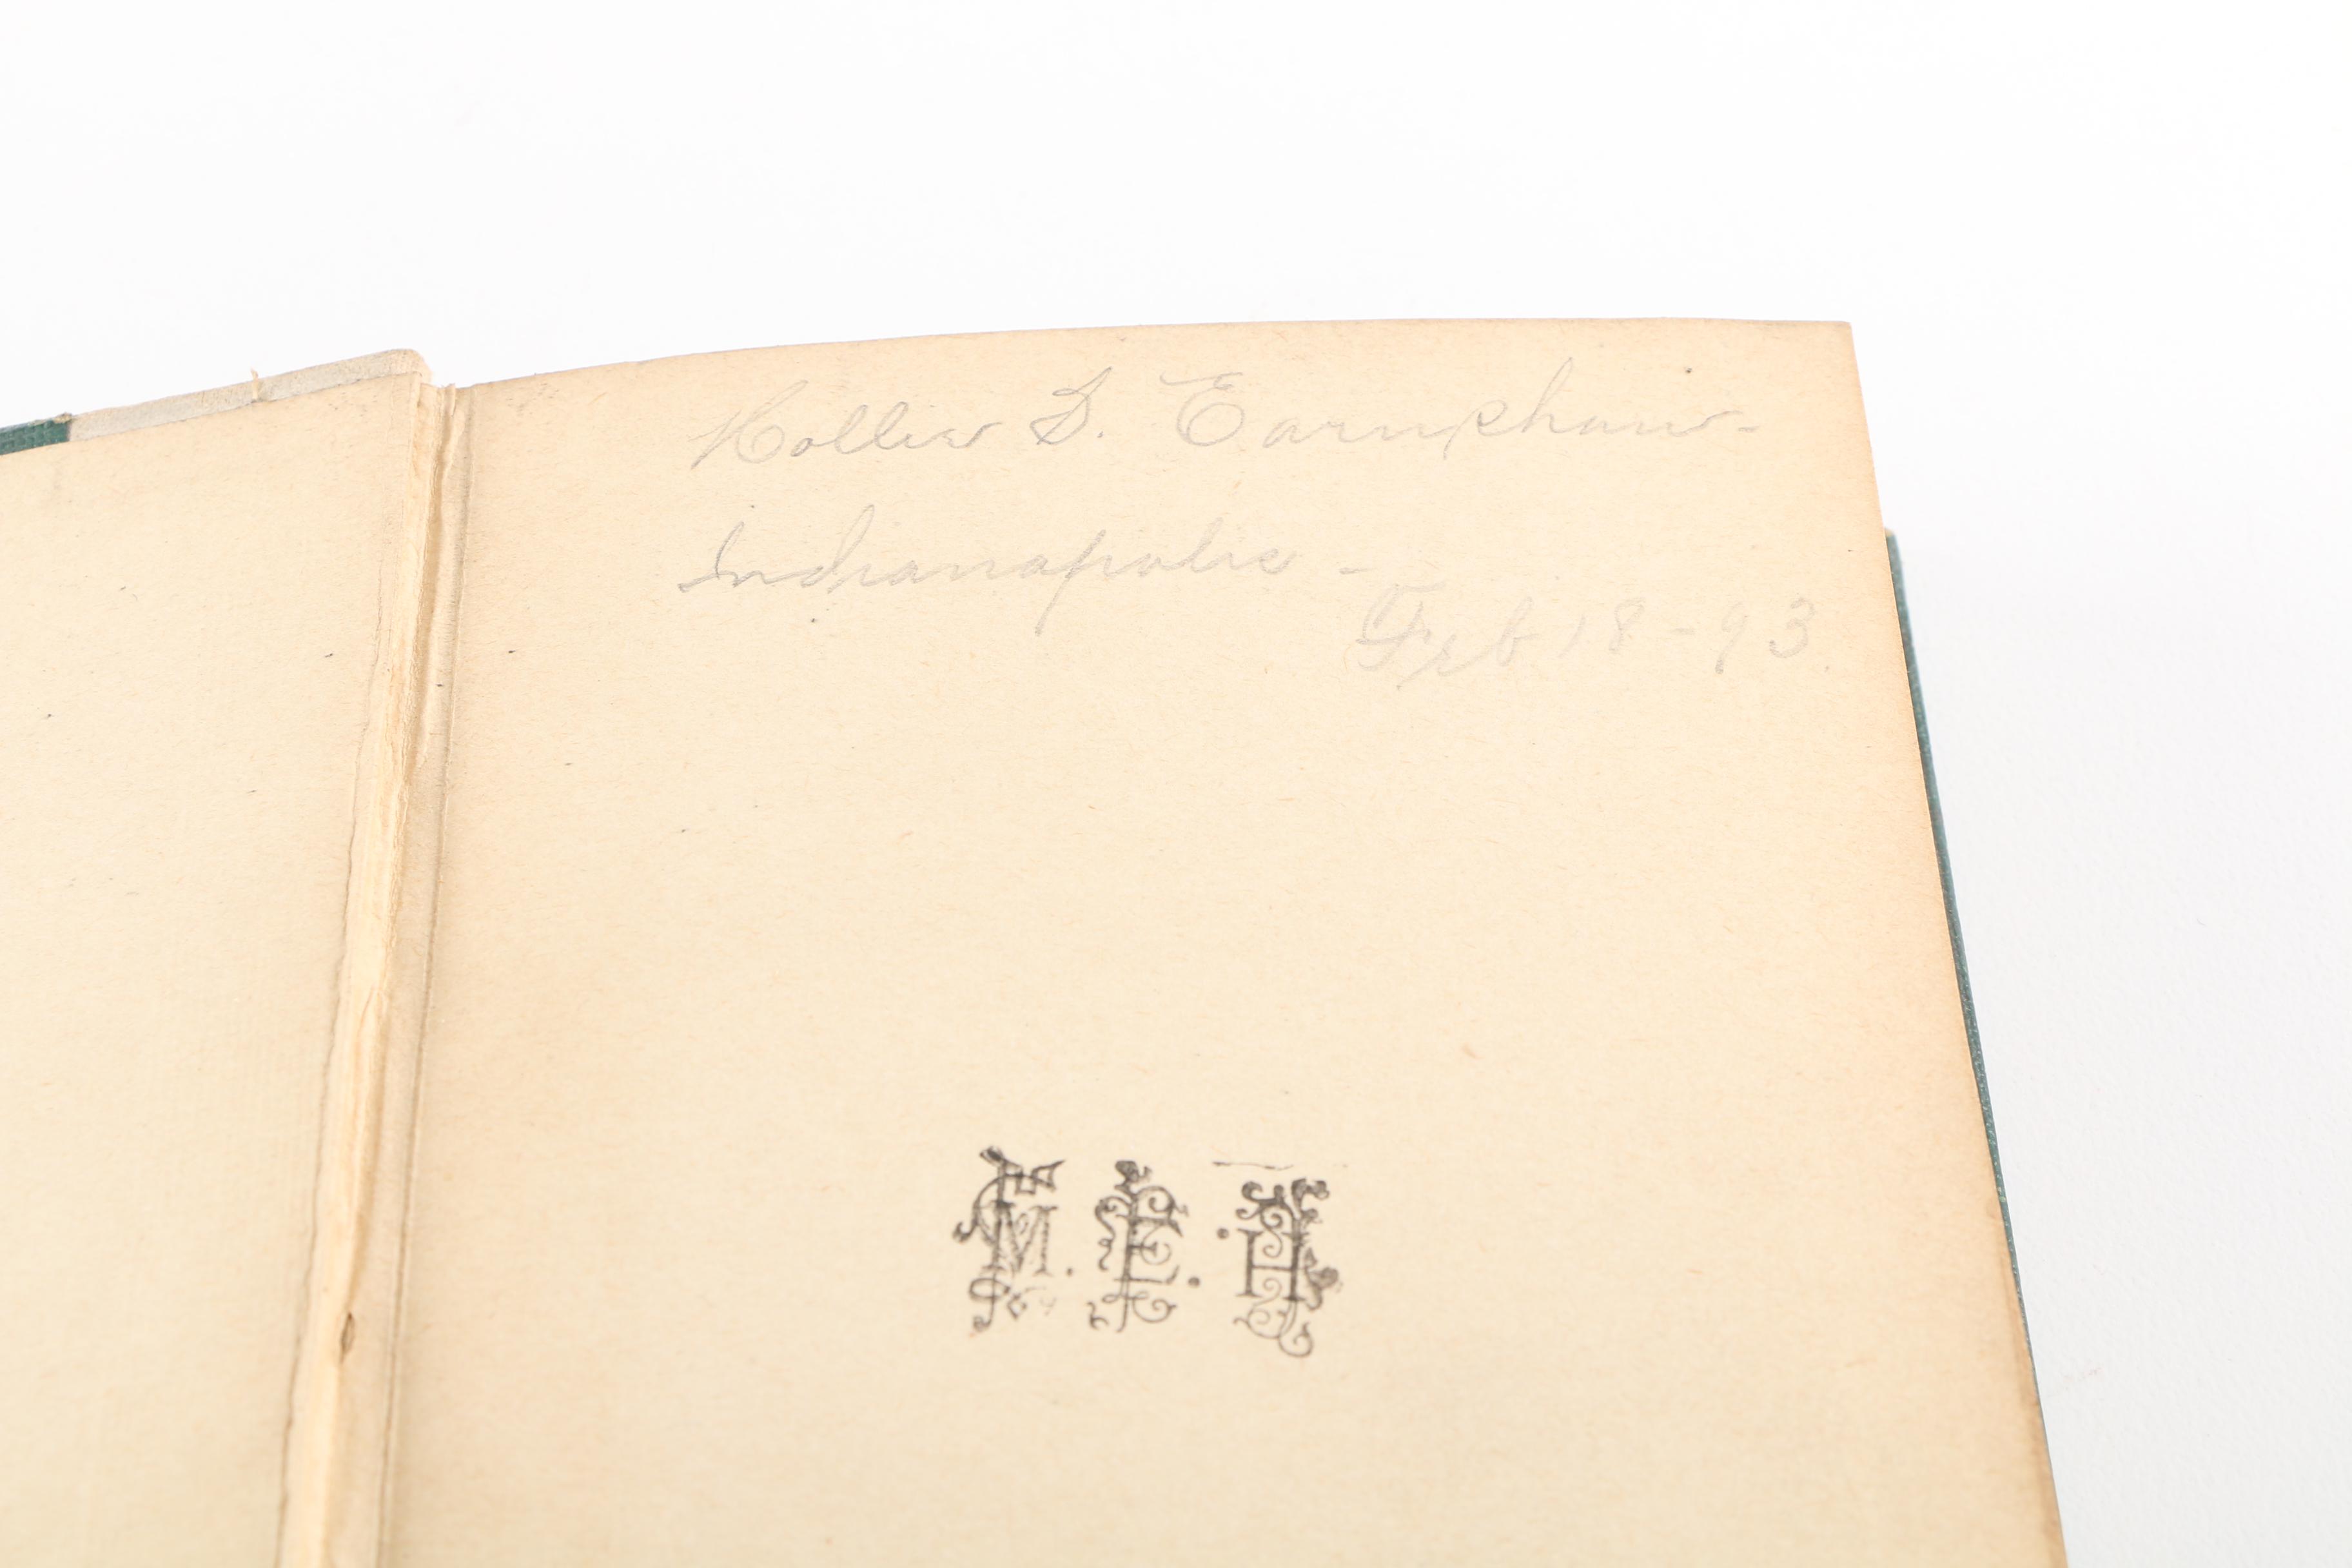 Hollis S. Earnshaw-
Indianapolis -
Feb 18-93.
M. E. H